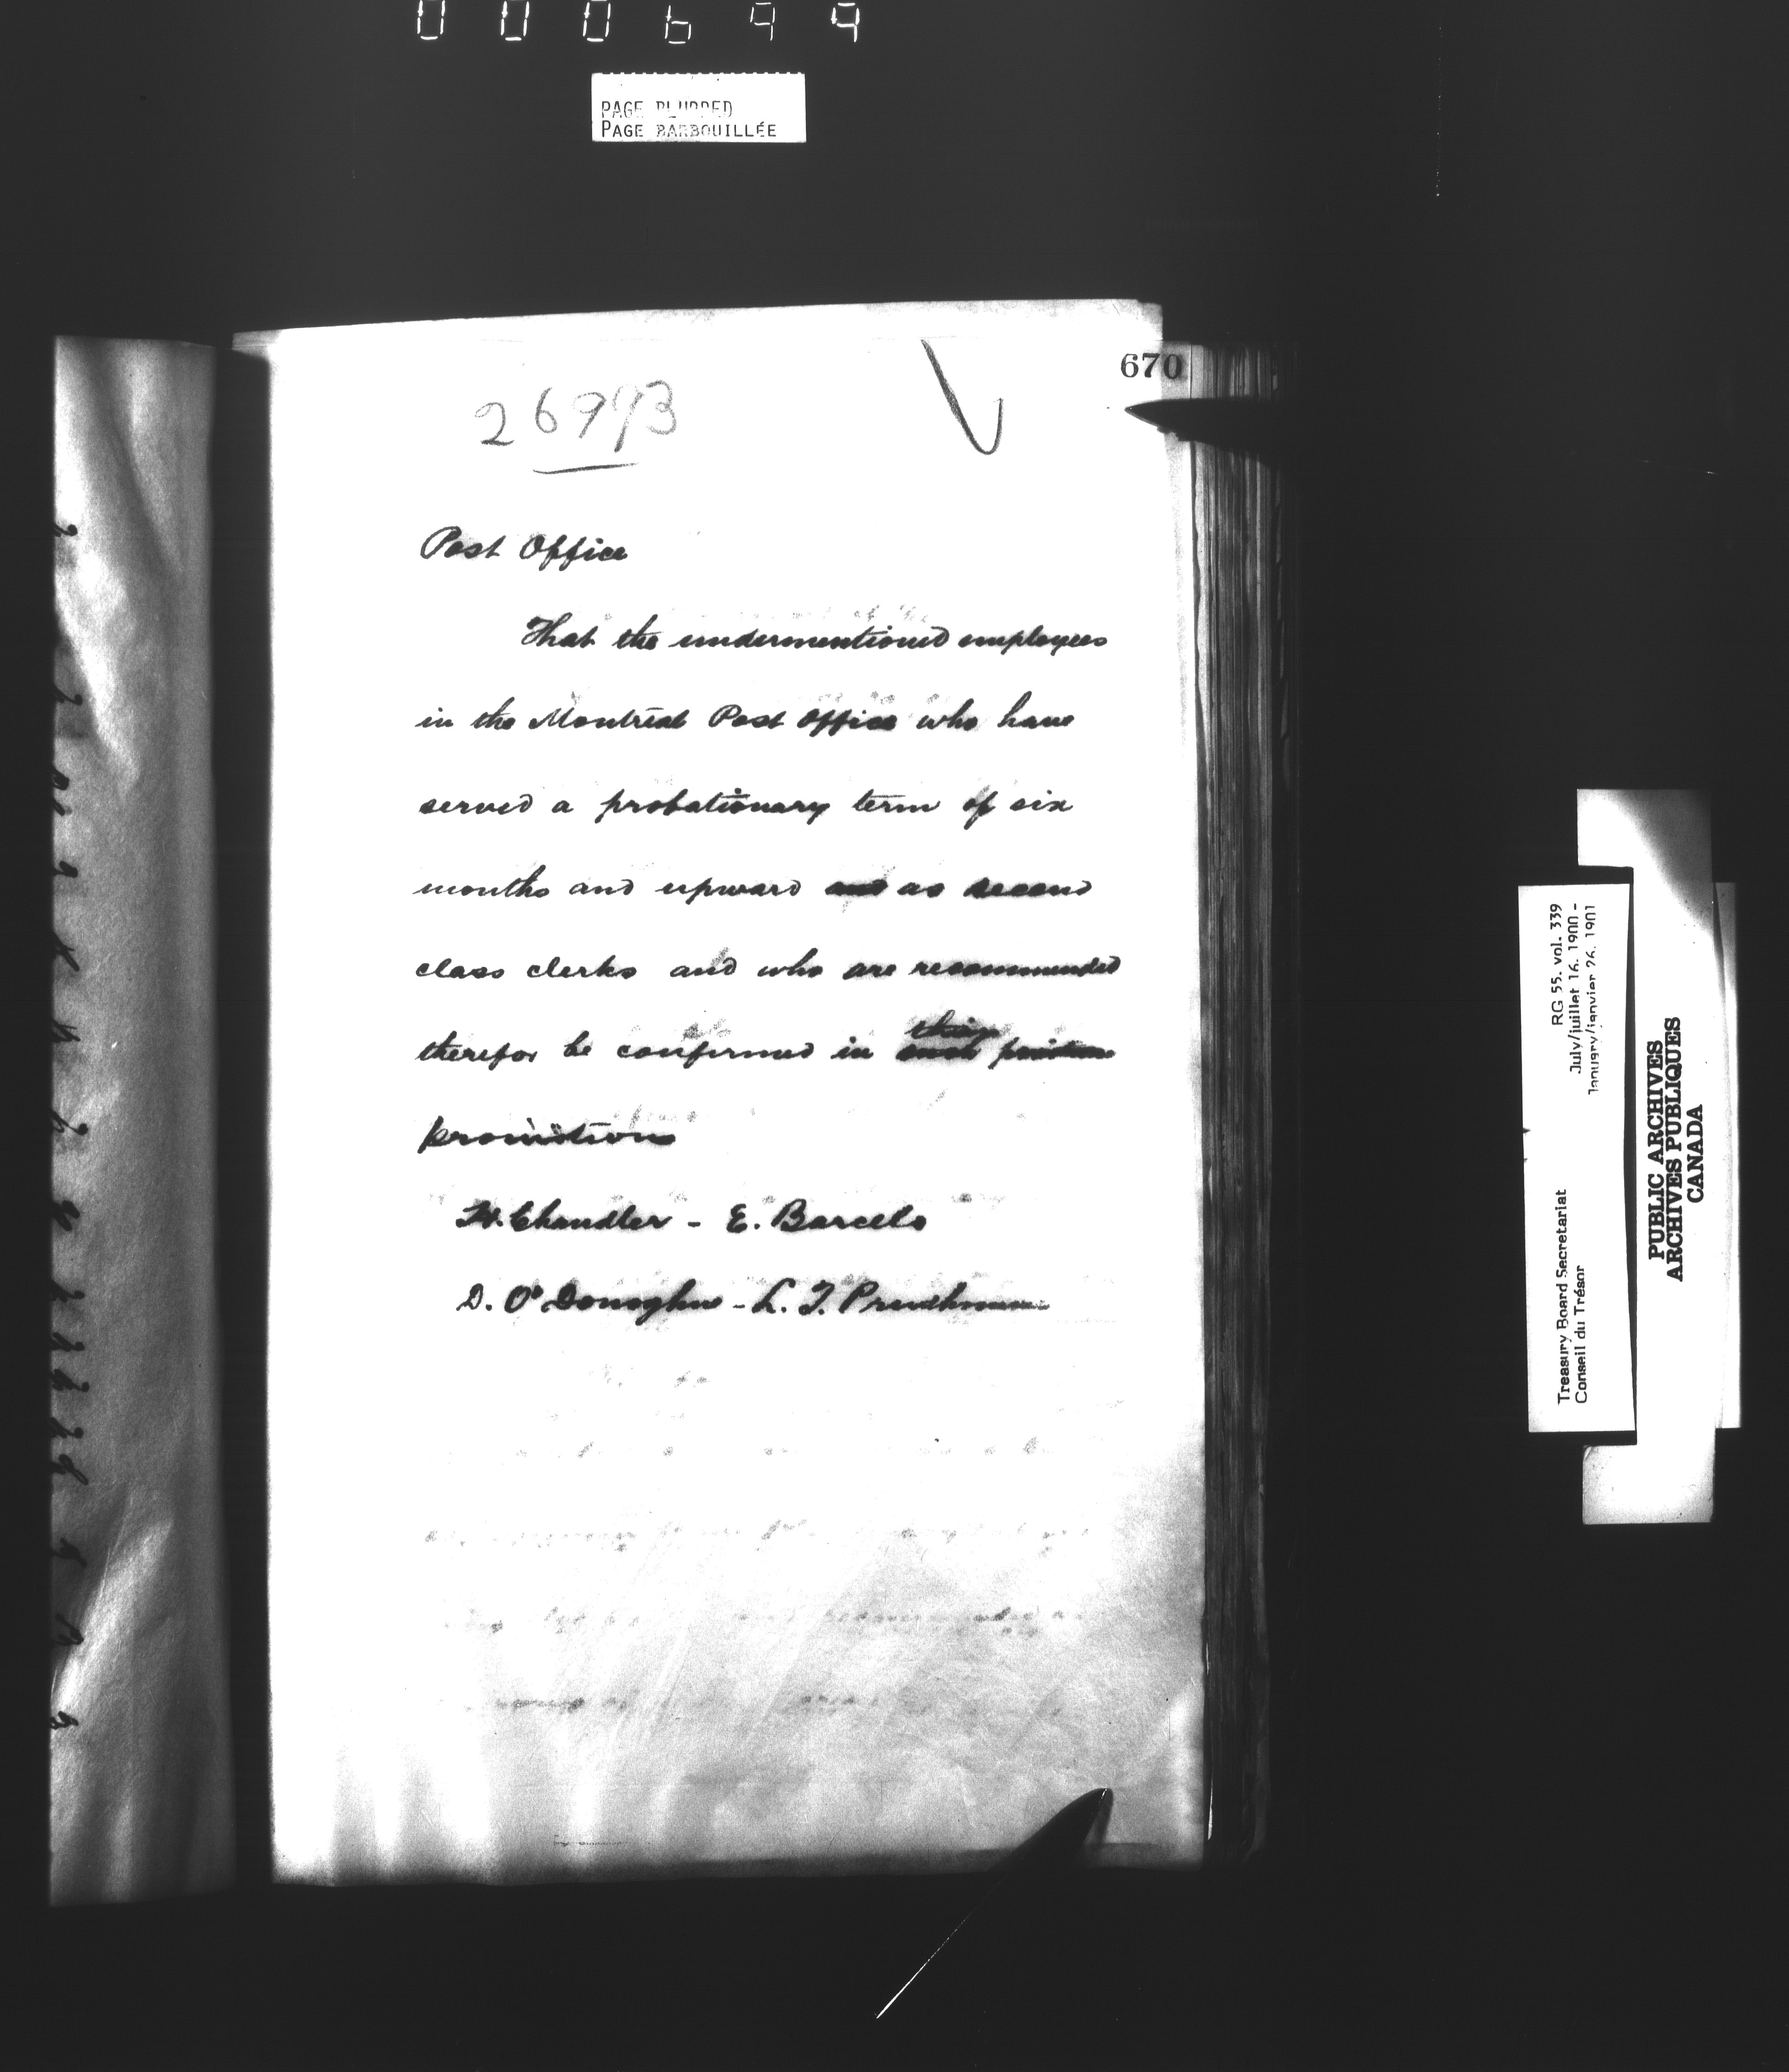 000699
PAGE BLURRED
PAGE BARBOUILLÉE
670
26993
Post Office
That the undermentioned employees
in the Montreal Post Office who have
served a probationary term of six
months and upward and as second
class clerks and who are recommended
therefor be confirmed in such their position
promotion
H. Chandler - E. Barcelo
D. O'Donoghue - L. T. Prudhomme
RG 55, vol. 339
July/juillet 16, 1900 -
January/janvier 26, 1901
Treasury Board Secretariat
Conseil du Trésor
PUBLIC ARCHIVES
ARCHIVES PUBLIQUES
CANADA